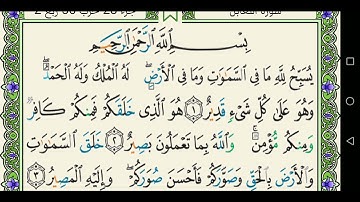 سورة التغابن
جزء 28 حزب 56 ربع 2
بِسْمِ ٱللَّهِ ٱلرَّحْمَٰنِ ٱلرَّحِيمِ
يُسَبِّحُ لِلَّهِ مَا فِى ٱلسَّمَٰوَٰتِ وَمَا فِى ٱلْأَرْضِ ۖ لَهُ ٱلْمُلْكُ وَلَهُ ٱلْحَمْدُ ۖ
وَهُوَ عَلَىٰ كُلِّ شَىْءٍ قَدِيرٌ ١ هُوَ ٱلَّذِى خَلَقَكُمْ فَمِنكُمْ كَافِرٌ
وَمِنكُم مُّؤْمِنٌ ۚ وَٱللَّهُ بِمَا تَعْمَلُونَ بَصِيرٌ ٢ خَلَقَ ٱلسَّمَٰوَٰتِ
وَٱلْأَرْضَ بِٱلْحَقِّ وَصَوَّرَكُمْ فَأَحْسَنَ صُوَرَكُمْ ۖ وَإِلَيْهِ ٱلْمَصِيرُ ٣